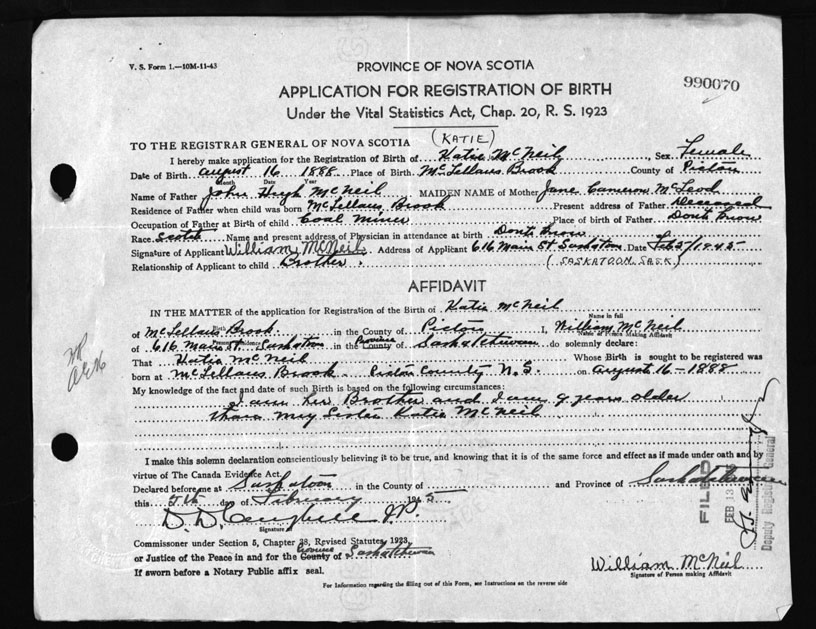 V. S. Form 1.—10M-11-43
PROVINCE OF NOVA SCOTIA
990070
APPLICATION FOR REGISTRATION OF BIRTH
Under the Vital Statistics Act, Chap. 20, R. S. 1923
TO THE REGISTRAR GENERAL OF NOVA SCOTIA
(KATIE)
I hereby make application for the Registration of Birth of Katie McNeil Sex Female
Date of Birth August 16 1888 Place of Birth McLellans Brook County of Pictou
Month Date Year
Name of Father John Hugh McNeil MAIDEN NAME of Mother Jane Cameron McLeod
Residence of Father when child was born McLellans Brook Present address of Father Deceased
Occupation of Father at Birth of child Coal Miner Place of birth of Father Dont Know
Race Scotch Name and present address of Physician in attendance at birth Dont Know
Signature of Applicant William McNeil Address of Applicant 616 Main St Saskatoon Date Feb 5/1945
Relationship of Applicant to child Brother. (SASKATOON, SASK)
AFFIDAVIT
IN THE MATTER of the application for Registration of the Birth of Katie McNeil
Name in full
of McLellans Brook in the County of Pictou I, William McNeil
Birth Name of Person making Affidavit
of 616 Main St. Saskatoon in the County of Province Saskatchewan do solemnly declare:
Present Residence
That Katie McNeil Whose Birth is sought to be registered was
born at McLellans Brook. Pictou County N.S. on August 16-1888
My knowledge of the fact and date of such Birth is based on the following circumstances:
I am her Brother and I am 9 years older
than my Sister Katie McNeil
I make this solemn declaration conscientiously believing it to be true, and knowing that it is of the same force and effect as if made under oath and by
virtue of The Canada Evidence Act.
Declared before me at Saskatoon in the County of and Province of Saskatchewan
this 5th day of February 1945
J.P.
Signature of
Commissioner under Section 5, Chapter 38, Revised Statutes 1923,
or Justice of the Peace in and for the County of Province Saskatchewan
If sworn before a Notary Public affix seal.
William McNeil
Signature of Person making Affidavit
For Information regarding the filling out of this Form, see Instructions on the reverse side
FILED
FEB 13
Deputy Registrar General